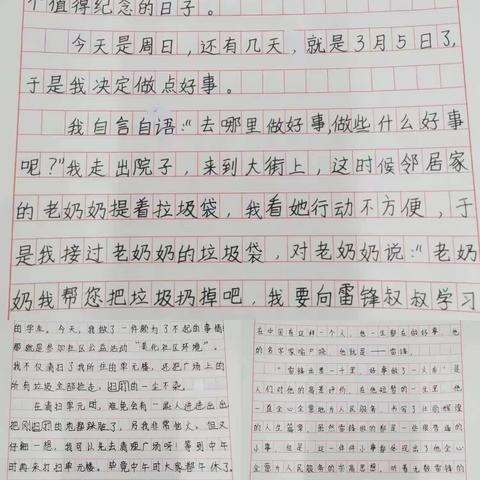 个值得纪念的日子。
今天是周日，还有几天，就是3月5日了,
于是我决定做点好事。
我自言自语："去哪里做好事,做些什么好事
呢?"我走出院子，来到大街上，这时候邻居家
的老奶奶提着垃圾袋，我看她行动不方便，于
是我接过老奶奶的垃圾袋，对老奶奶说："老奶
奶我帮您把垃圾扔掉吧，我要向雷锋叔叔学习
的学生。今天，我做了一件颇为了不起的事情
那就是参加社区公益活动"美化社区环境"。
我不仅清扫了我所住的单元楼，还把广场上的
所有垃圾全部捡走，扫的一尘不染。
在清扫单元时，难免会有一些人进进出出
把刚扫的地都踩脏了，另我非常恼火。但又
仔细一想，我可以先去清理广场呀！等到中午
时再来打扫单元楼。毕竟中午时大家都午休了
在中国有这样一个人，他一生都在做好事，他
的名字家喻户晓，他就是——雷锋。
"雷锋出差一千里，好事做了一火车"是
人们对他的高度评价。在他短暂的一生里，他
一直全心全意地为人民服务，书写了壮丽辉煌
的人生篇章。虽然雷锋做的都是一些很普通的
小事，但是，这一件件小事都体现出了他全心
全意为人民服务的崇高思想。听着无数雷锋的